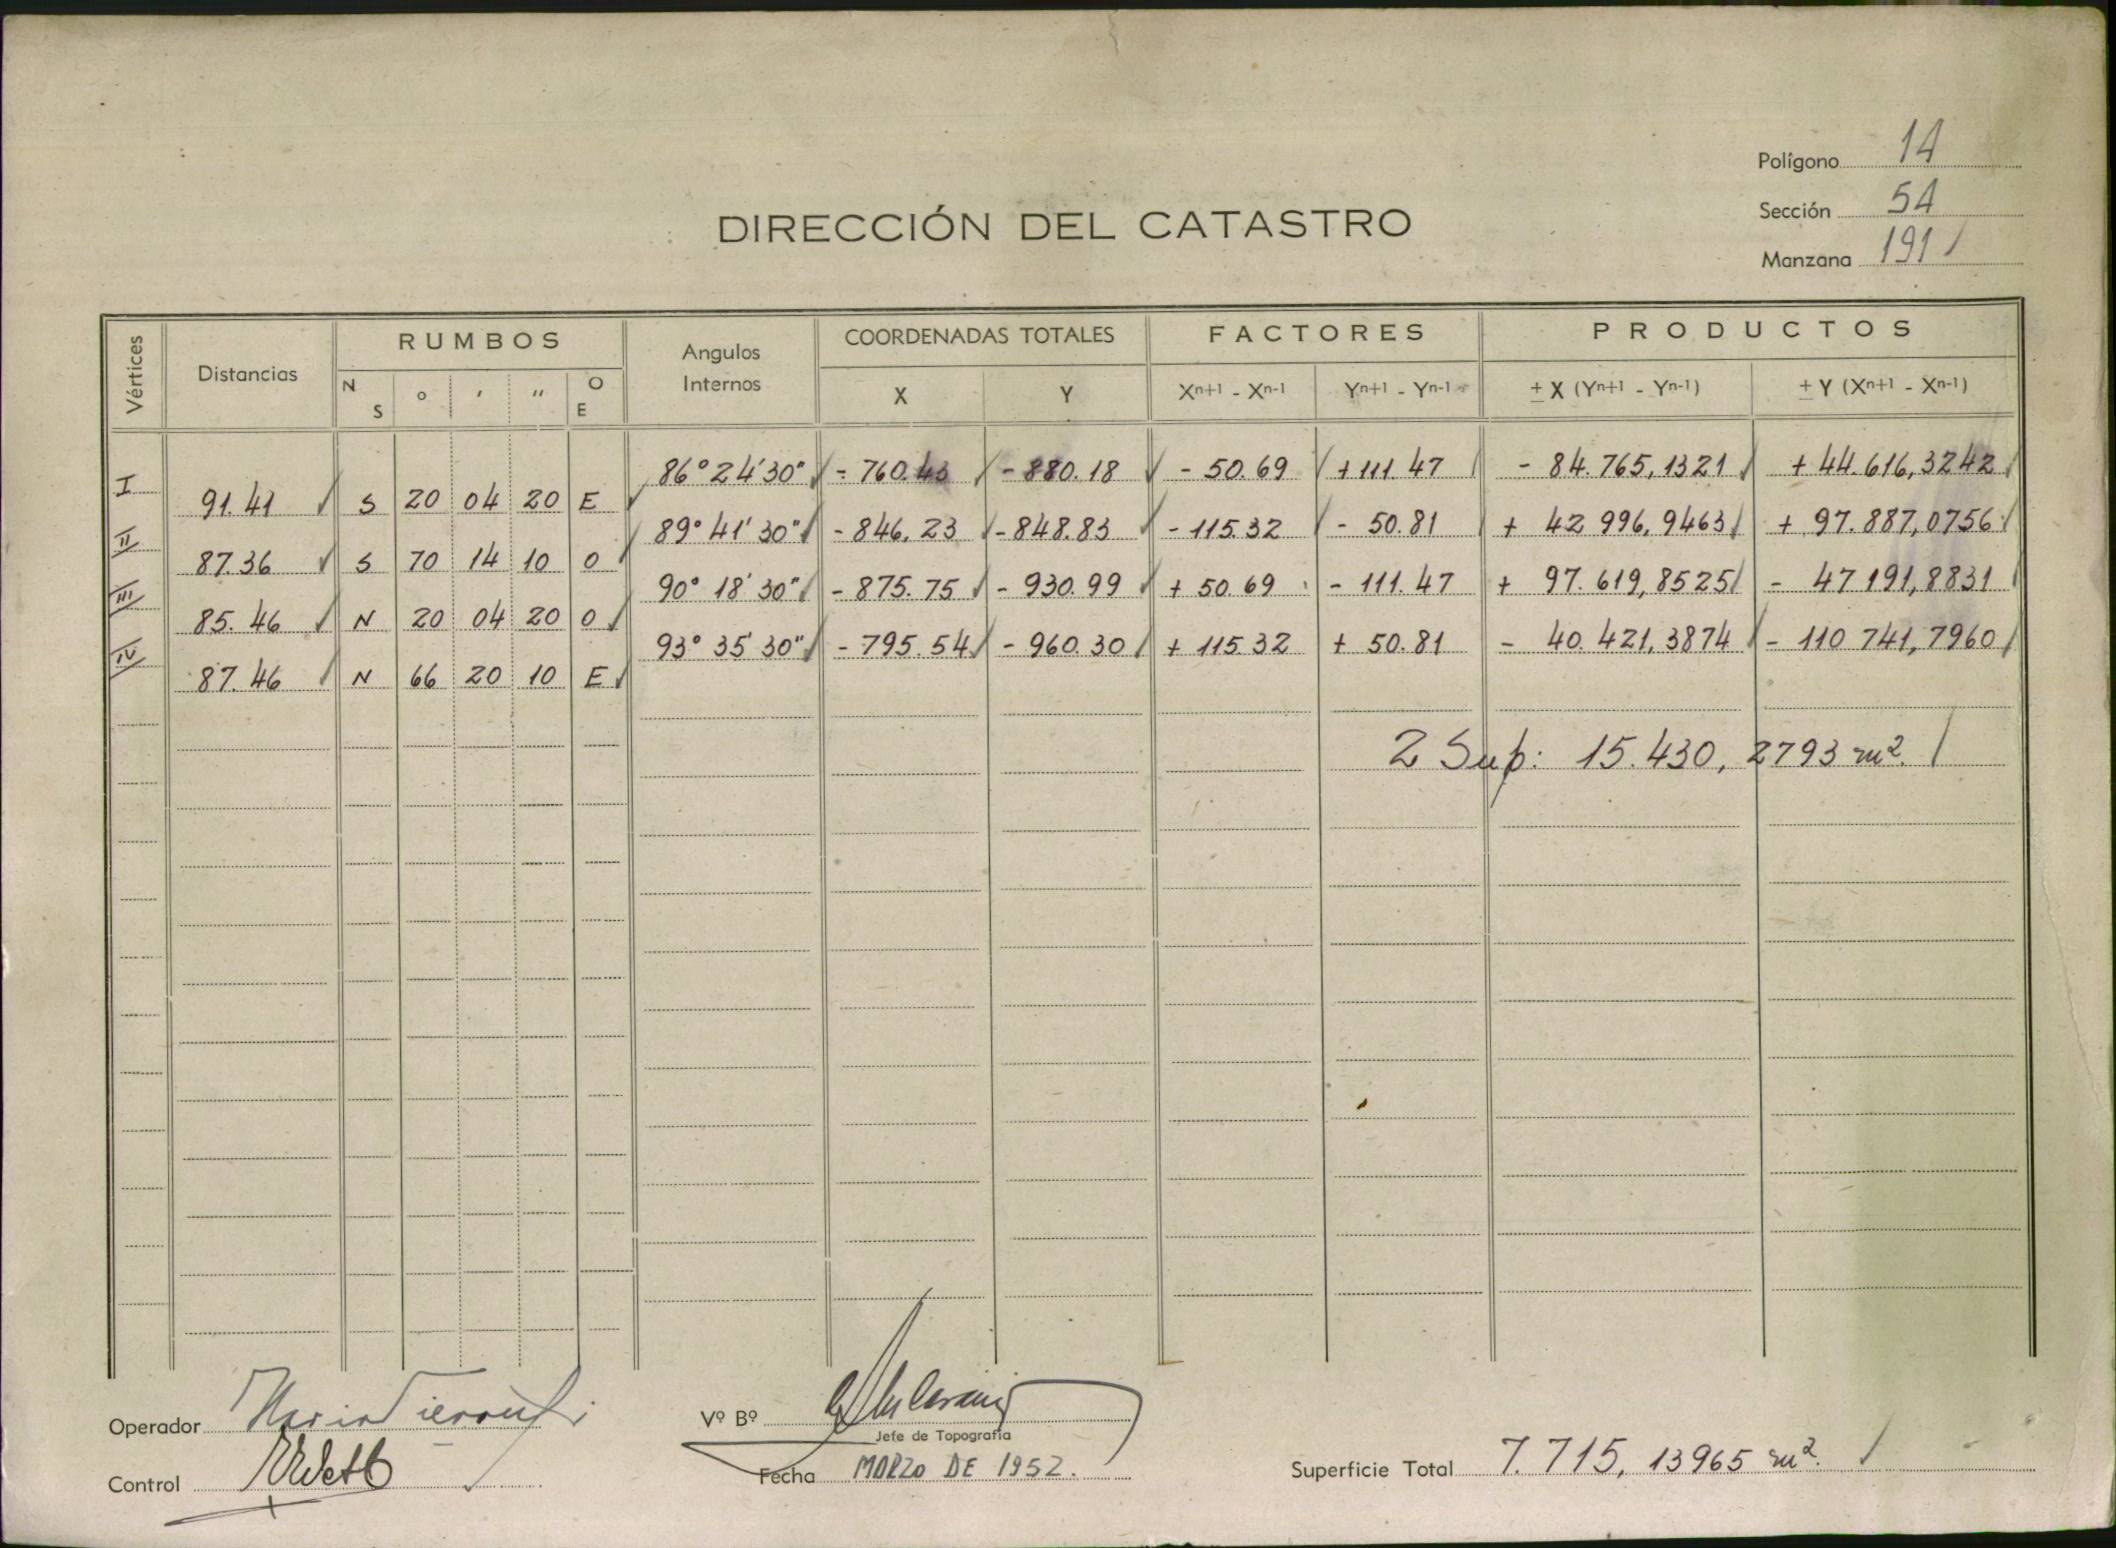 Polígono 14
Sección 54
Manzana 191
DIRECCIÓN DEL CATASTRO
Vértices Distancias RUMBOS Angulos Internos COORDENADAS TOTALES FACTORES PRODUCTOS
N S ° ' '' O E X Y Xn+1 - Xn-1 Yn+1 - Yn-1 ± X (Yn+1 - Yn-1) ± Y (Xn+1 - Xn-1)
I 86° 24' 30" - 760.43 - 880.18 - 50.69 + 111.47 - 84.765,1321 + 44.616,3242
91.41 S 20 04 20 E
II 89° 41' 30" - 846.23 - 848.83 - 115.32 - 50.81 + 42 996,9463 + 97.887,0756
87.36 S 70 14 10 O
III 90° 18' 30" - 875.75 - 930.99 + 50.69 - 111.47 + 97.619,8525 - 47 191,8831
85.46 N 20 04 20 O
IV 93° 35' 30" - 795.54 - 960.30 + 115.32 + 50.81 - 40.421,3874 - 110 741,7960
87.46 N 66 20 10 E
2 Sup: 15.430,2793 m².
Operador
Vº Bº
Jefe de Topografía
Control
Fecha MARZO DE 1952.
Superficie Total 7.715,13965 m².